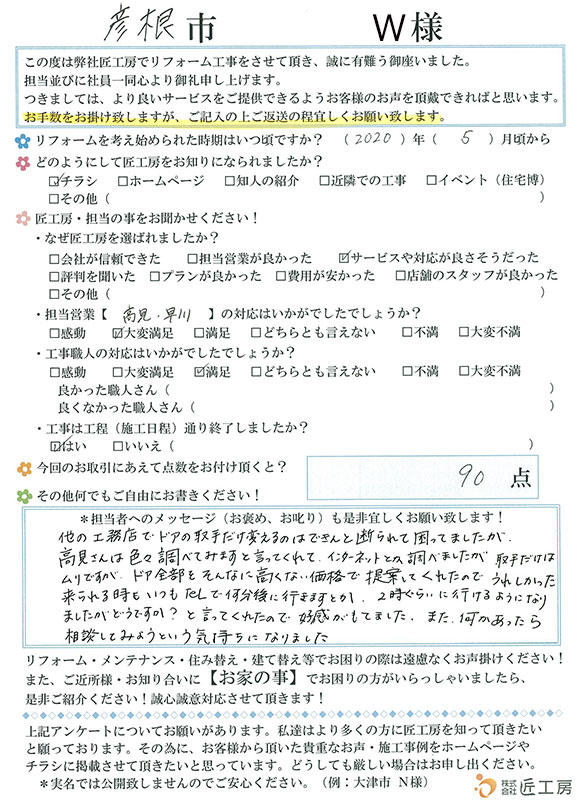 彦根市 W様
この度は弊社匠工房でリフォーム工事をさせて頂き、誠に有難う御座いました。
担当並びに社員一同心より御礼申し上げます。
つきましては、より良いサービスをご提供できるようお客様のお声を頂戴できればと思います。
お手数をお掛け致しますが、ご記入の上ご返送の程宜しくお願い致します。
リフォームを考え始められた時期はいつ頃ですか？ （2020）年（5）月頃から
どのようにして匠工房をお知りになられましたか？
☑チラシ □ホームページ □知人の紹介 □近隣での工事 □イベント（住宅博）
□その他（ ）
匠工房・担当の事をお聞かせください！
・なぜ匠工房を選ばれましたか？
□会社が信頼できた □担当営業が良かった ☑サービスや対応が良さそうだった
□評判を聞いた □プランが良かった □費用が安かった □店舗のスタッフが良かった
□その他（ ）
・担当営業【 高見・早川 】の対応はいかがでしたでしょうか？
□感動 ☑大変満足 □満足 □どちらとも言えない □不満 □大変不満
・工事職人の対応はいかがでしたでしょうか？
□感動 □大変満足 ☑満足 □どちらとも言えない □不満 □大変不満
良かった職人さん（ ）
良くなかった職人さん（ ）
・工事は工程（施工日程）通り終了しましたか？
☑はい □いいえ（ ）
今回のお取引にあえて点数をお付け頂くと？ 90 点
その他何でもご自由にお書きください！
＊担当者へのメッセージ（お褒め、お叱り）も是非宜しくお願い致します！
他の工務店でドアの取手だけ変えるのはできんと断られて困ってましたが
高見さんは色々調べてみますと言ってくれて、インターネットとか調べましたが取手だけは
ムリですが、ドア全部をそんなに高くない価格で提案してくれたのでうれしかった
来られる時もいつもTELで何分後に行きますとか、2時ぐらいに行けるようになり
ましたがどうですか？と言ってくれたので好感がもてました。また、何かあったら
相談してみようという気持ちになりました
リフォーム・メンテナンス・住み替え・建て替え等でお困りの際は遠慮なくお声掛けください！
また、ご近所様・お知り合いに【お家の事】でお困りの方がいらっしゃいましたら、
是非ご紹介ください！誠心誠意対応させて頂きます！
上記アンケートについてお願いがあります。私達はより多くの方に匠工房を知って頂きたい
と願っております。その為に、お客様から頂いた貴重なお声・施工事例をホームページや
チラシに掲載させて頂きたいと思っています。どうしても厳しい場合はお申し出ください。
＊実名では公開致しませんのでご安心ください。（例：大津市 N様）
株式会社 匠工房